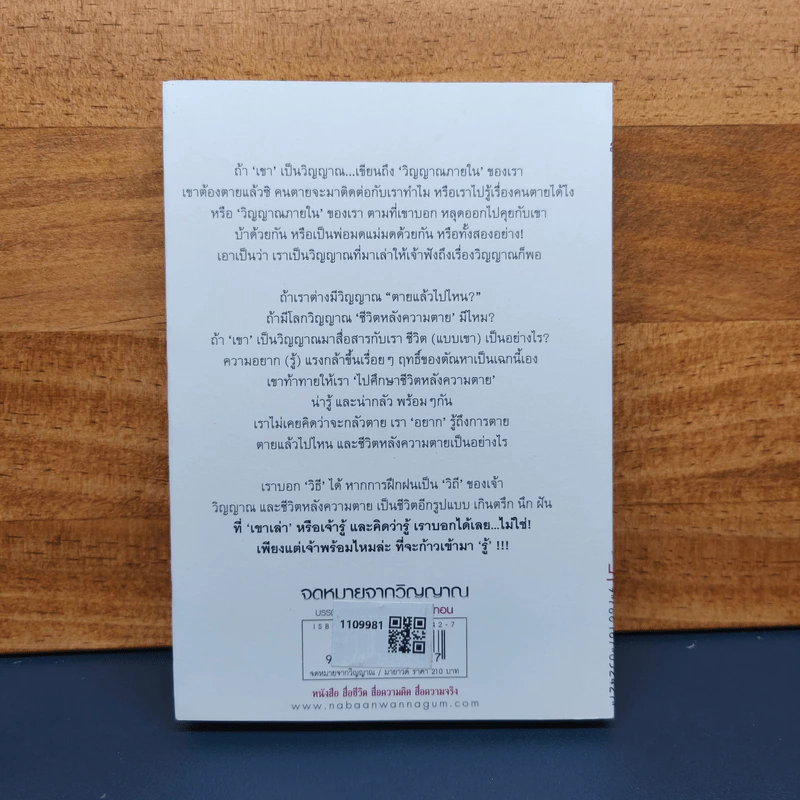 ถ้า ‘เขา’ เป็นวิญญาณ...เขียนถึง ‘วิญญาณภายใน’ ของเรา
เขาต้องตายแล้วซิ คนตายจะมาติดต่อกับเราทำไม หรือเราไปรู้เรื่องคนตายได้ไง
หรือ ‘วิญญาณภายใน’ ของเรา ตามที่เขาบอก หลุดออกไปคุยกับเขา
บ้าด้วยกัน หรือเป็นพ่อมดแม่มดด้วยกัน หรือทั้งสองอย่าง!
เอาเป็นว่า เราเป็นวิญญาณที่มาเล่าให้เจ้าฟังถึงเรื่องวิญญาณก็พอ
ถ้าเราต่างมีวิญญาณ “ตายแล้วไปไหน?”
ถ้ามีโลกวิญญาณ ‘ชีวิตหลังความตาย’ มีไหม?
ถ้า ‘เขา’ เป็นวิญญาณมาสื่อสารกับเรา ชีวิต (แบบเขา) เป็นอย่างไร?
ความอยาก (รู้) แรงกล้าขึ้นเรื่อยๆ ฤทธิ์ของตัณหาเป็นเฉกนี้เอง
เขาท้าทายให้เรา ‘ไปศึกษาชีวิตหลังความตาย’
น่ารู้ และน่ากลัว พร้อมๆกัน
เราไม่เคยคิดว่าจะกลัวตาย เรา ‘อยาก’ รู้ถึงการตาย
ตายแล้วไปไหน และชีวิตหลังความตายเป็นอย่างไร
เราบอก ‘วิธี’ ได้ หากการฝึกฝนเป็น ‘วิถี’ ของเจ้า
วิญญาณ และชีวิตหลังความตาย เป็นชีวิตอีกรูปแบบ เกินตรึก นึก ฝัน
ที่ ‘เขาเล่า’ หรือเจ้ารู้ และคิดว่ารู้ เราบอกได้เลย...ไม่ใช่!
เพียงแต่เจ้าพร้อมไหมล่ะ ที่จะก้าวเข้ามา ‘รู้’ !!!
จดหมายจากวิญญาณ
ISB
2-7
1109981
9
7
จดหมายจากวิญญาณ / มายาวดี ราคา 210 บาท
หนังสือ สื่อชีวิต สื่อความคิด สื่อความจริง
www.nabaanwannagum.com